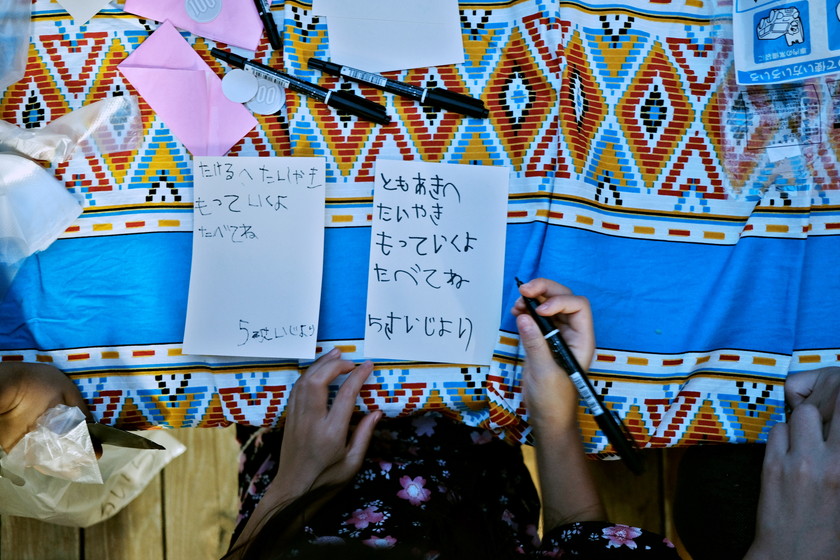 たけるへ たいやき
もって いくよ
たべてね
5さいじより
ともあきへ
たいやき
もっていくよ
たべてね
5さいじより
100